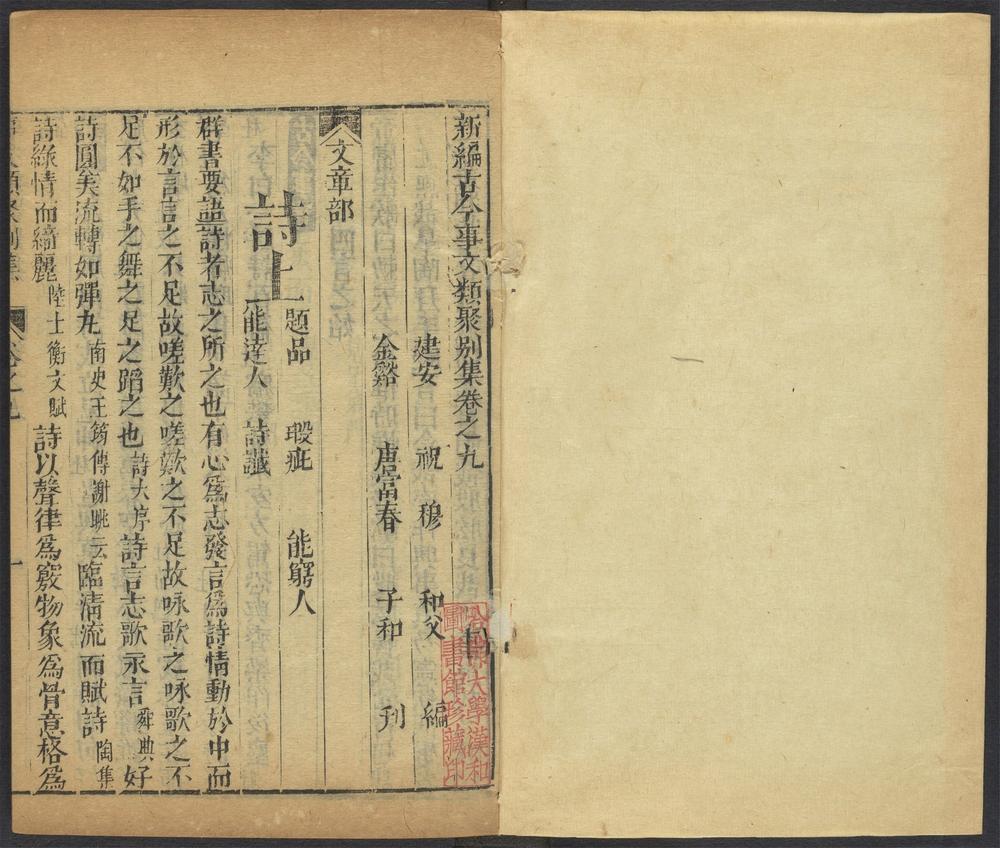 新編古今事文類聚别集卷之九
建安 祝 穆 和父 編
金谿 唐富春 子和 刊
文章部
詩上 題品 瑕疵 能窮人
能達人 詩讖
群書要語詩者志之所之也在心爲志發言爲詩情動於中而
形於言言之不足故嗟歎之嗟歎之不足故咏歌之咏歌之不
足不如手之舞之足之蹈之也詩大序詩言志歌永言舜典好
詩圓美流轉如彈丸南史王筠傳謝眺云臨清流而賦詩陶集
詩緣情而綺麗陸士衡文賦詩以聲律爲竅物象爲骨意格爲
卷之九
一
哈佛大學漢和
圖書館珍藏印